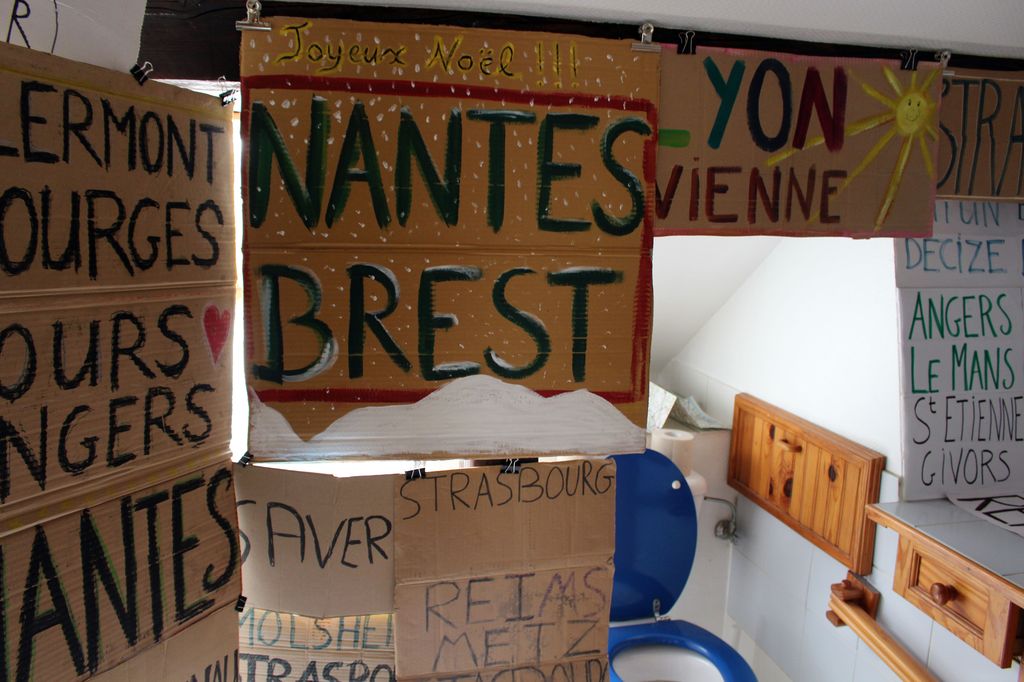 R
LERMONT
OURGES
OURS
NGERS
NANTES
Joyeux Noël !!!
NANTES
BREST
LYON
VIENNE
STRA
DECIZE
ANGERS
LE MANS
St ETIENNE
GIVORS
SAVER
MOLSHEI
STRASBO
STRASBOURG
REIMS
METZ